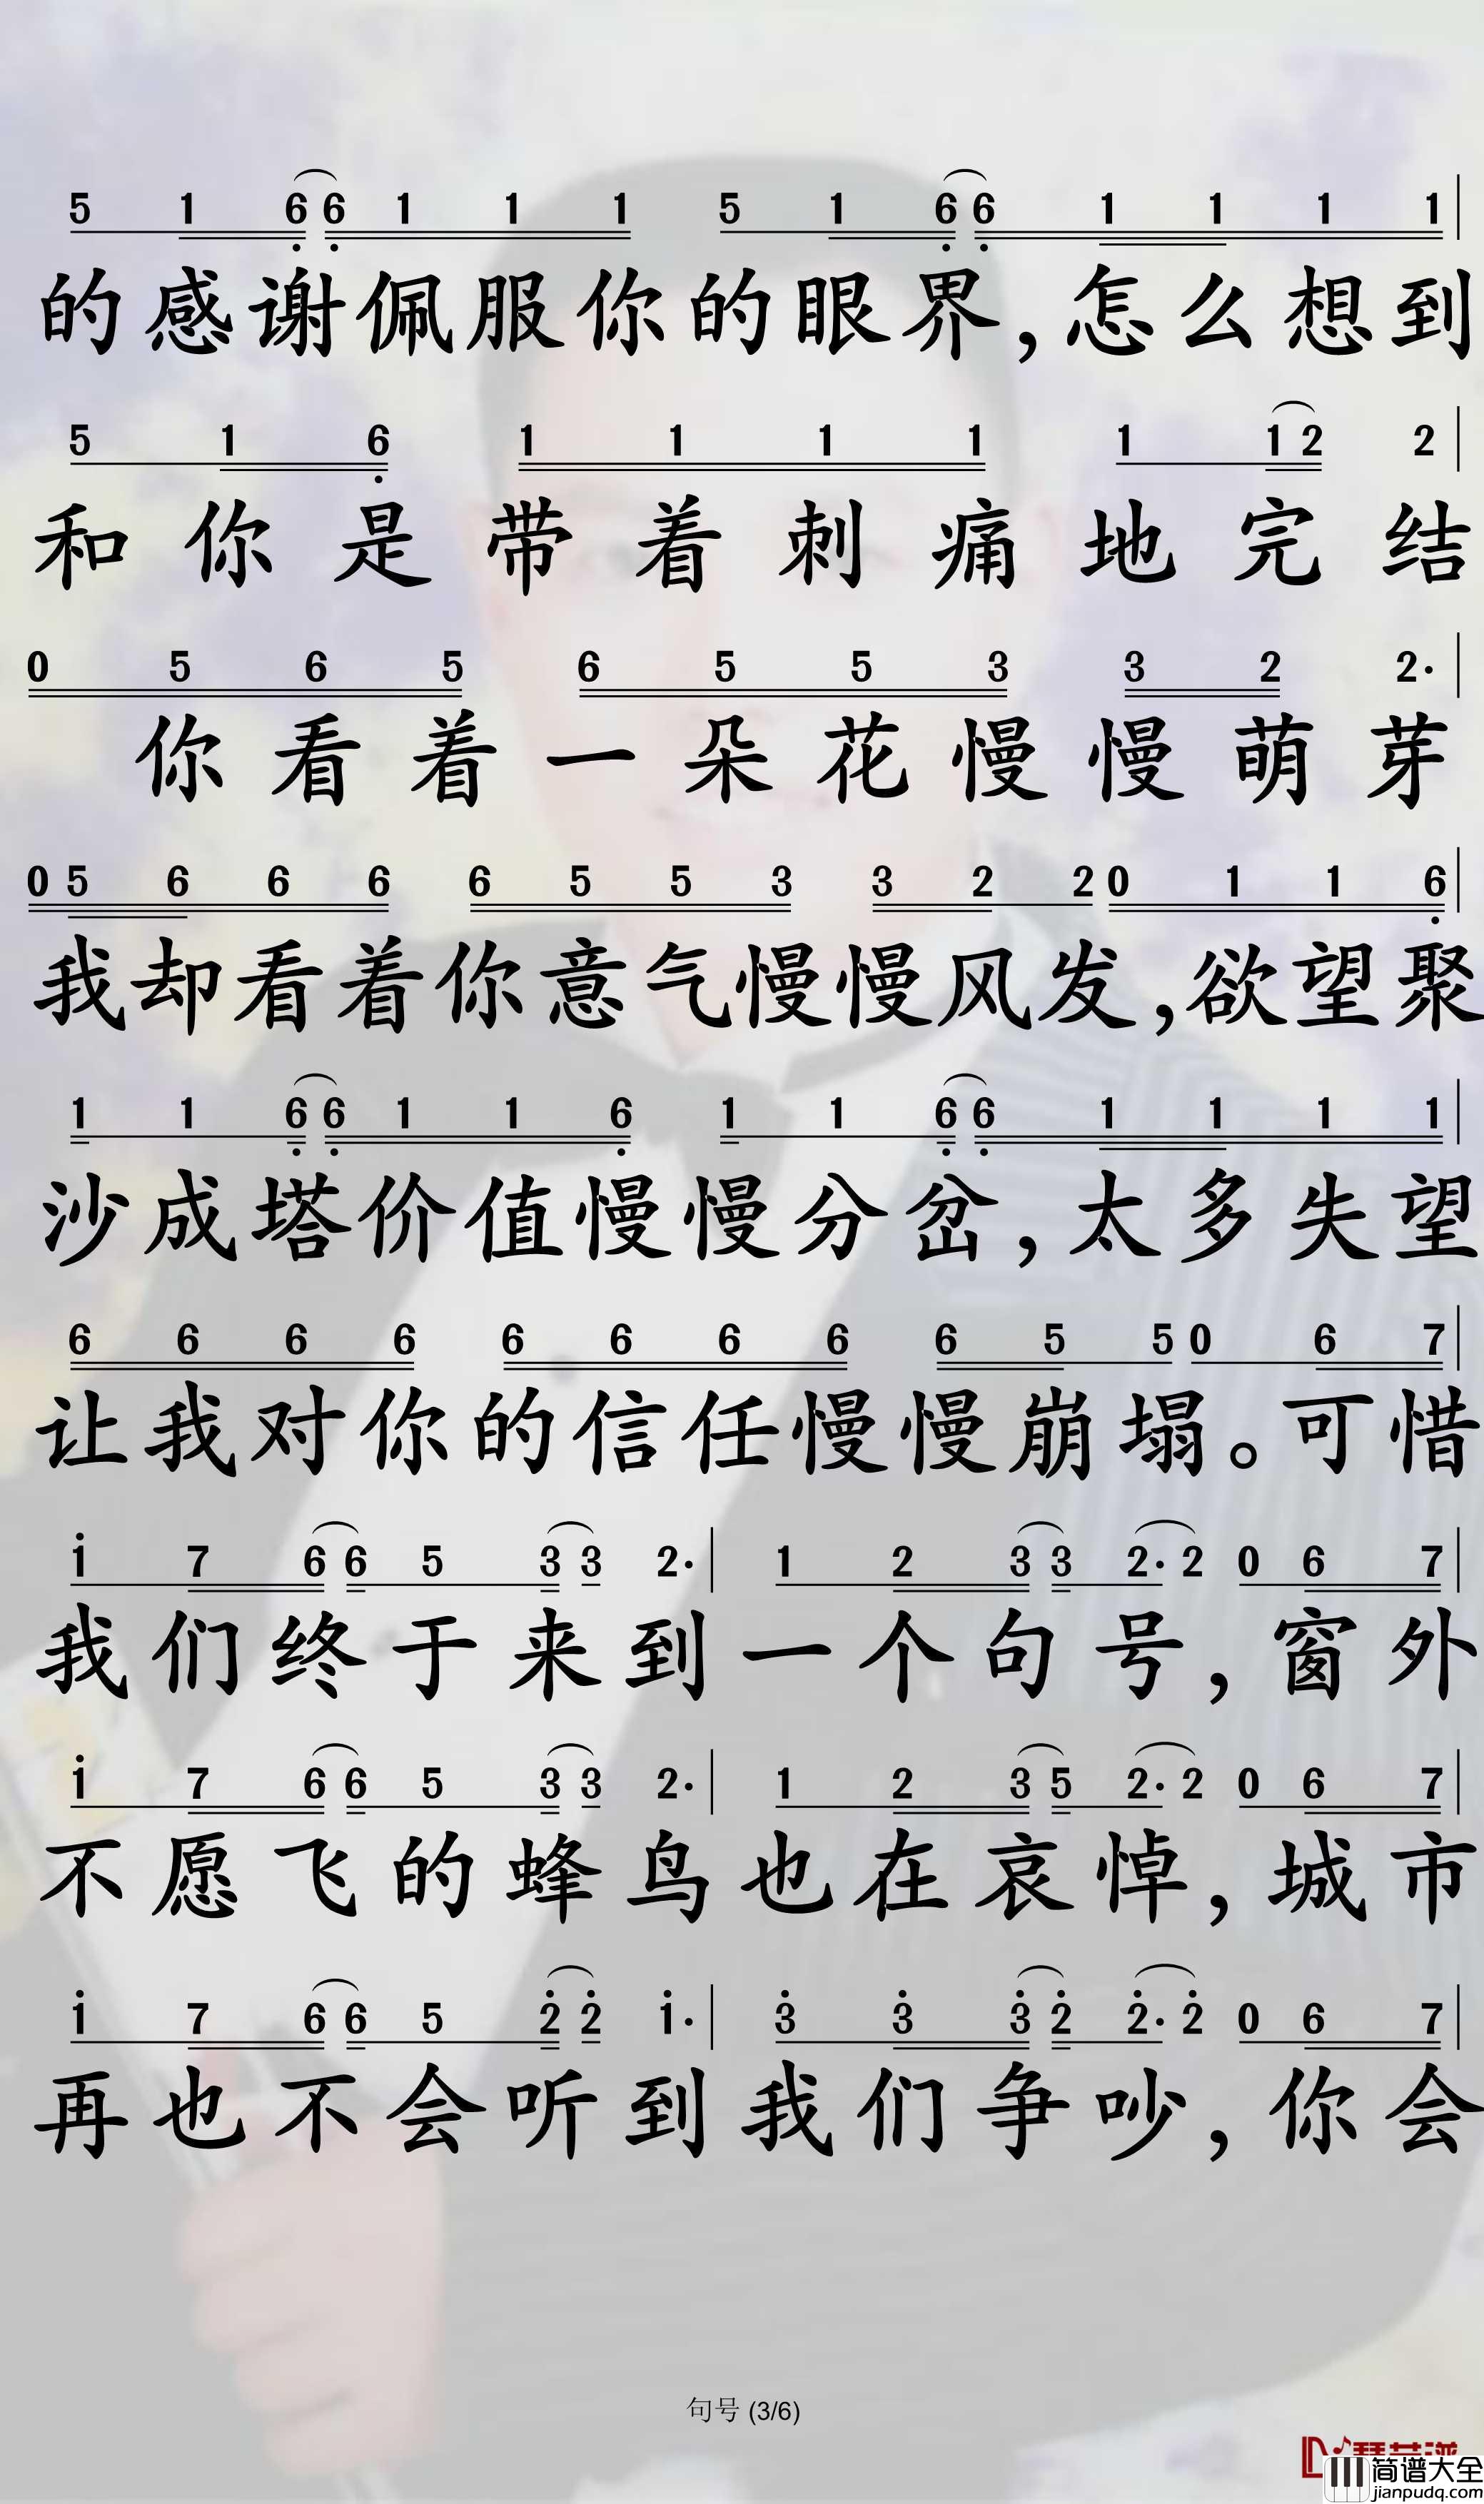 5 1 6 6 1 1 1 5 1 6 6 1 1 1 1
的感谢佩服你的眼界,怎么想到
5 1 6 1 1 1 1 1 1 2 2
和你是带着刺痛地完结
0 5 6 5 6 5 5 3 3 2 2·
你看着一朵花慢慢萌芽
0 5 6 6 6 6 5 5 3 3 2 2 0 1 1 6
我却看着你意气慢慢风发,欲望聚
1 1 6 6 1 1 6 1 1 6 6 1 1 1 1
沙成塔价值慢慢分岔,太多失望
6 6 6 6 6 6 6 6 6 5 5 0 6 7
让我对你的信任慢慢崩塌。可惜
1 7 6 6 5 3 3 2· 1 2 3 3 2· 2 0 6 7
我们终于来到一个句号,窗外
1 7 6 6 5 3 3 2· 1 2 3 5 2· 2 0 6 7
不愿飞的蜂鸟也在哀悼,城市
1 7 6 6 5 2 2 1· 3 3 3 2 2· 2 0 6 7
再也不会听到我们争吵,你会
句号 (3/6)
简谱大全
jianpudq.com